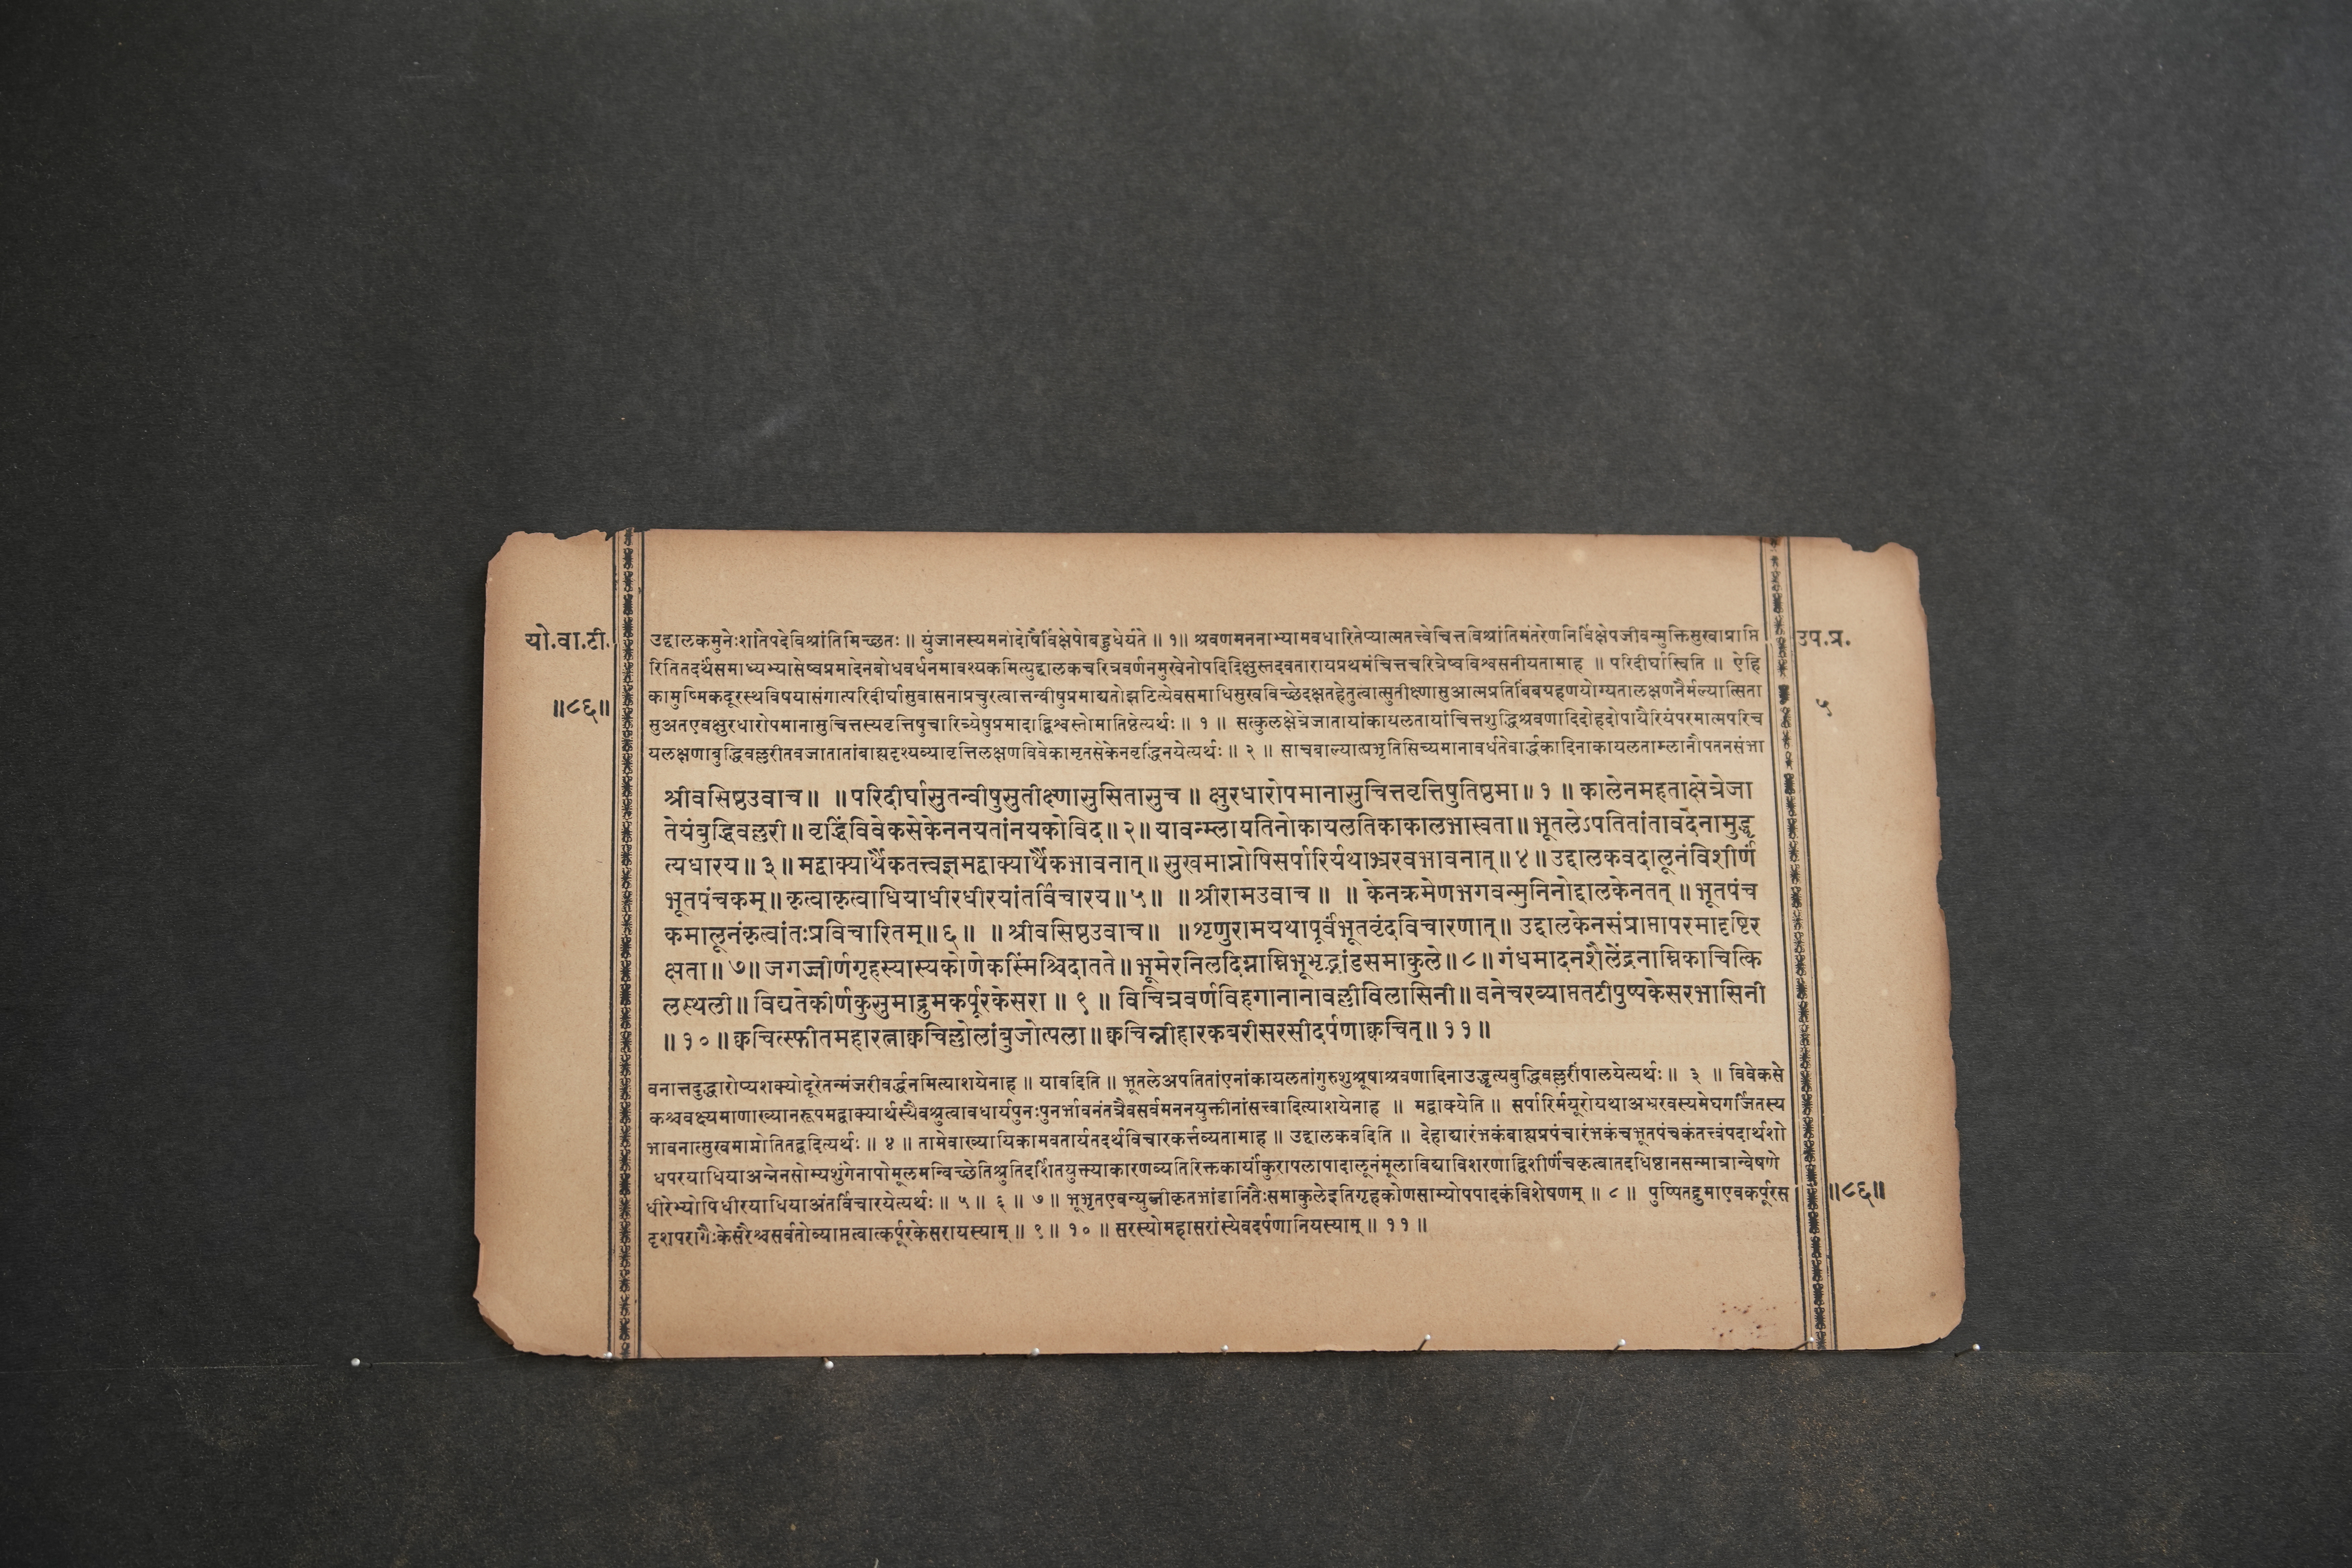 यो.वा.टी.
॥८६॥
उप.प्र.
५
उद्दालकमुनेःशांतेपदेविश्रांतिमिच्छतः ॥ युंजानस्यमनोदोषैर्विक्षेपोबहुधेर्यते ॥ १॥ श्रवणमननाभ्यामवधारितेप्यात्मतत्त्वेचित्तविश्रांतिमंतरेणनिर्विक्षेपजीवन्मुक्तिसुखाप्राप्ति
रितितदर्थसमाध्यभ्यासेष्वप्रमादेनबोधवर्धनमावश्यकमित्युद्दालकचरित्रवर्णनमुखेनोपदिदिक्षुस्तदवतारायप्रथमंचित्तचरित्रेष्वविश्वसनीयतामाह ॥ परिदीर्घास्विति ॥ ऐहि
कामुष्मिकदूरस्थविषयासंगात्परिदीर्घासुवासनाप्रचुरत्वात्तन्वीषुप्रमाद्यतोझटित्येवसमाधिसुखविच्छेदक्षतहेतुत्वात्सुतीक्ष्णासुआत्मप्रतिबिंबग्रहणयोग्यतालक्षणनैर्मल्यात्सिता
सुअतएवक्षुरधारोपमानासुचित्तस्यवृत्तिषुचारित्र्येषुप्रमादाद्विश्वस्तोमातिष्ठेत्यर्थः ॥ १ ॥ सत्कुलक्षेत्रेजातायांकायलतायांचित्तशुद्धिश्रवणादिदोहदोपायैरियंपरमात्मपरिच
यलक्षणाबुद्धिवल्लरीतवजातातांबाह्यदृश्यव्यावृत्तिलक्षणविवेकामृतसेकेनवृद्धिंनयेत्यर्थः ॥ २ ॥ साचबाल्यात्प्रभृतिसिच्यमानावर्धतेवार्द्धकादिनाकायलताम्लानौपतनसंभा
श्रीवसिष्ठउवाच ॥ ॥ परिदीर्घासुतन्वीषुसुतीक्ष्णासुसितासुच ॥ क्षुरधारोपमानासुचित्तवृत्तिषुतिष्ठमा ॥ १ ॥ कालेनमहताक्षेत्रेजा
तेयंबुद्धिवल्लरी ॥ वृद्धिंविवेकसेकेननयतांनयकोविद ॥ २ ॥ यावन्म्लायतिनोकायलतिकाकालभास्वता ॥ भूतलेऽपतितांतावदेनामुद्धृ
त्यधारय ॥ ३ ॥ मद्वाक्यार्थैकतत्त्वज्ञमद्वाक्यार्थैकभावनात् ॥ सुखमाप्नोषिसर्पारिर्यथाभ्ररवभावनात् ॥ ४ ॥ उद्दालकवदालूनंविशीर्णं
भूतपंचकम् ॥ कृत्वाकृत्वाधियाधीरधीरयांतर्विचारय ॥ ५ ॥ ॥ श्रीरामउवाच ॥ ॥ केनक्रमेणभगवन्मुनिनोद्दालकेनतत् ॥ भूतपंच
कमालूनंकृत्वांतःप्रविचारितम् ॥ ६ ॥ ॥ श्रीवसिष्ठउवाच ॥ ॥ शृणुरामयथापूर्वंभूतवृंदविचारणात् ॥ उद्दालकेनसंप्राप्तापरमादृष्टिर
क्षता ॥ ७ ॥ जगज्जीर्णगृहस्यास्यकोणेकस्मिंश्चिदातते ॥ भूमेरनिलदिग्नाम्निभूभृद्भांडसमाकुले ॥ ८ ॥ गंधमादनशैलेंद्रनाम्निकाचित्कि
लस्थली ॥ विद्यतेकीर्णकुसुमाद्रुमकर्पूरकेसरा ॥ ९ ॥ विचित्रवर्णविहगानानावल्लीविलासिनी ॥ वनेचरव्याप्ततटीपुष्पकेसरभासिनी
॥ १० ॥ क्वचित्स्फीतमहारत्नाक्वचिल्लोलांबुजोत्पला ॥ क्वचिन्नीहारकबरीसरसीदर्पणाक्वचित् ॥ ११ ॥
वनात्तदुद्धारोप्यशक्योदूरेतन्मंजरीवर्द्धनमित्याशयेनाह ॥ यावदिति ॥ भूतलेअपतितांएनांकायलतांगुरुशुश्रूषाश्रवणादिनाउद्धृत्यबुद्धिवल्लरींपालयेत्यर्थः ॥ ३ ॥ विवेकसे
कश्चवक्ष्यमाणाख्यानरूपमद्वाक्यार्थस्यैवश्रुत्वावधार्यपुनःपुनर्भावनंतत्रैवसर्वमननयुक्तीनांसत्त्वादित्याशयेनाह ॥ मद्वाक्येति ॥ सर्पारिर्मयूरोयथाअभ्ररवस्यमेघगर्जितस्य
भावनात्सुखमाप्नोतितद्वदित्यर्थः ॥ ४ ॥ तामेवाख्यायिकामवतार्यतदर्थविचारकर्त्तव्यतामाह ॥ उद्दालकवदिति ॥ देहाद्यारंभकंबाह्यप्रपंचारंभकंचभूतपंचकंतत्त्वंपदार्थशो
धपरयाधियाअन्नेनसोम्यशुंगेनापोमूलमन्विच्छेतिश्रुतिदर्शितयुक्त्याकारणव्यतिरिक्तकार्यांकुरापलापादालूनंमूलाविद्याविशरणाद्विशीर्णंचकृत्वातदधिष्ठानसन्मात्रान्वेषणे
धीरेभ्योपिधीरयाधियाअंतर्विचारयेत्यर्थः ॥ ५ ॥ ६ ॥ ७ ॥ भूभृतएवन्युब्जीकृतभांडानितैःसमाकुलेइतिगृहकोणसाम्योपपादकंविशेषणम् ॥ ८ ॥ पुष्पितद्रुमाएवकर्पूरस
दृशपरागैःकेसरैश्चसर्वतोव्याप्तत्वात्कर्पूरकेसरायस्याम् ॥ ९ ॥ १० ॥ सरस्योमहासरांस्येवदर्पणानियस्याम् ॥ ११ ॥
॥८६॥